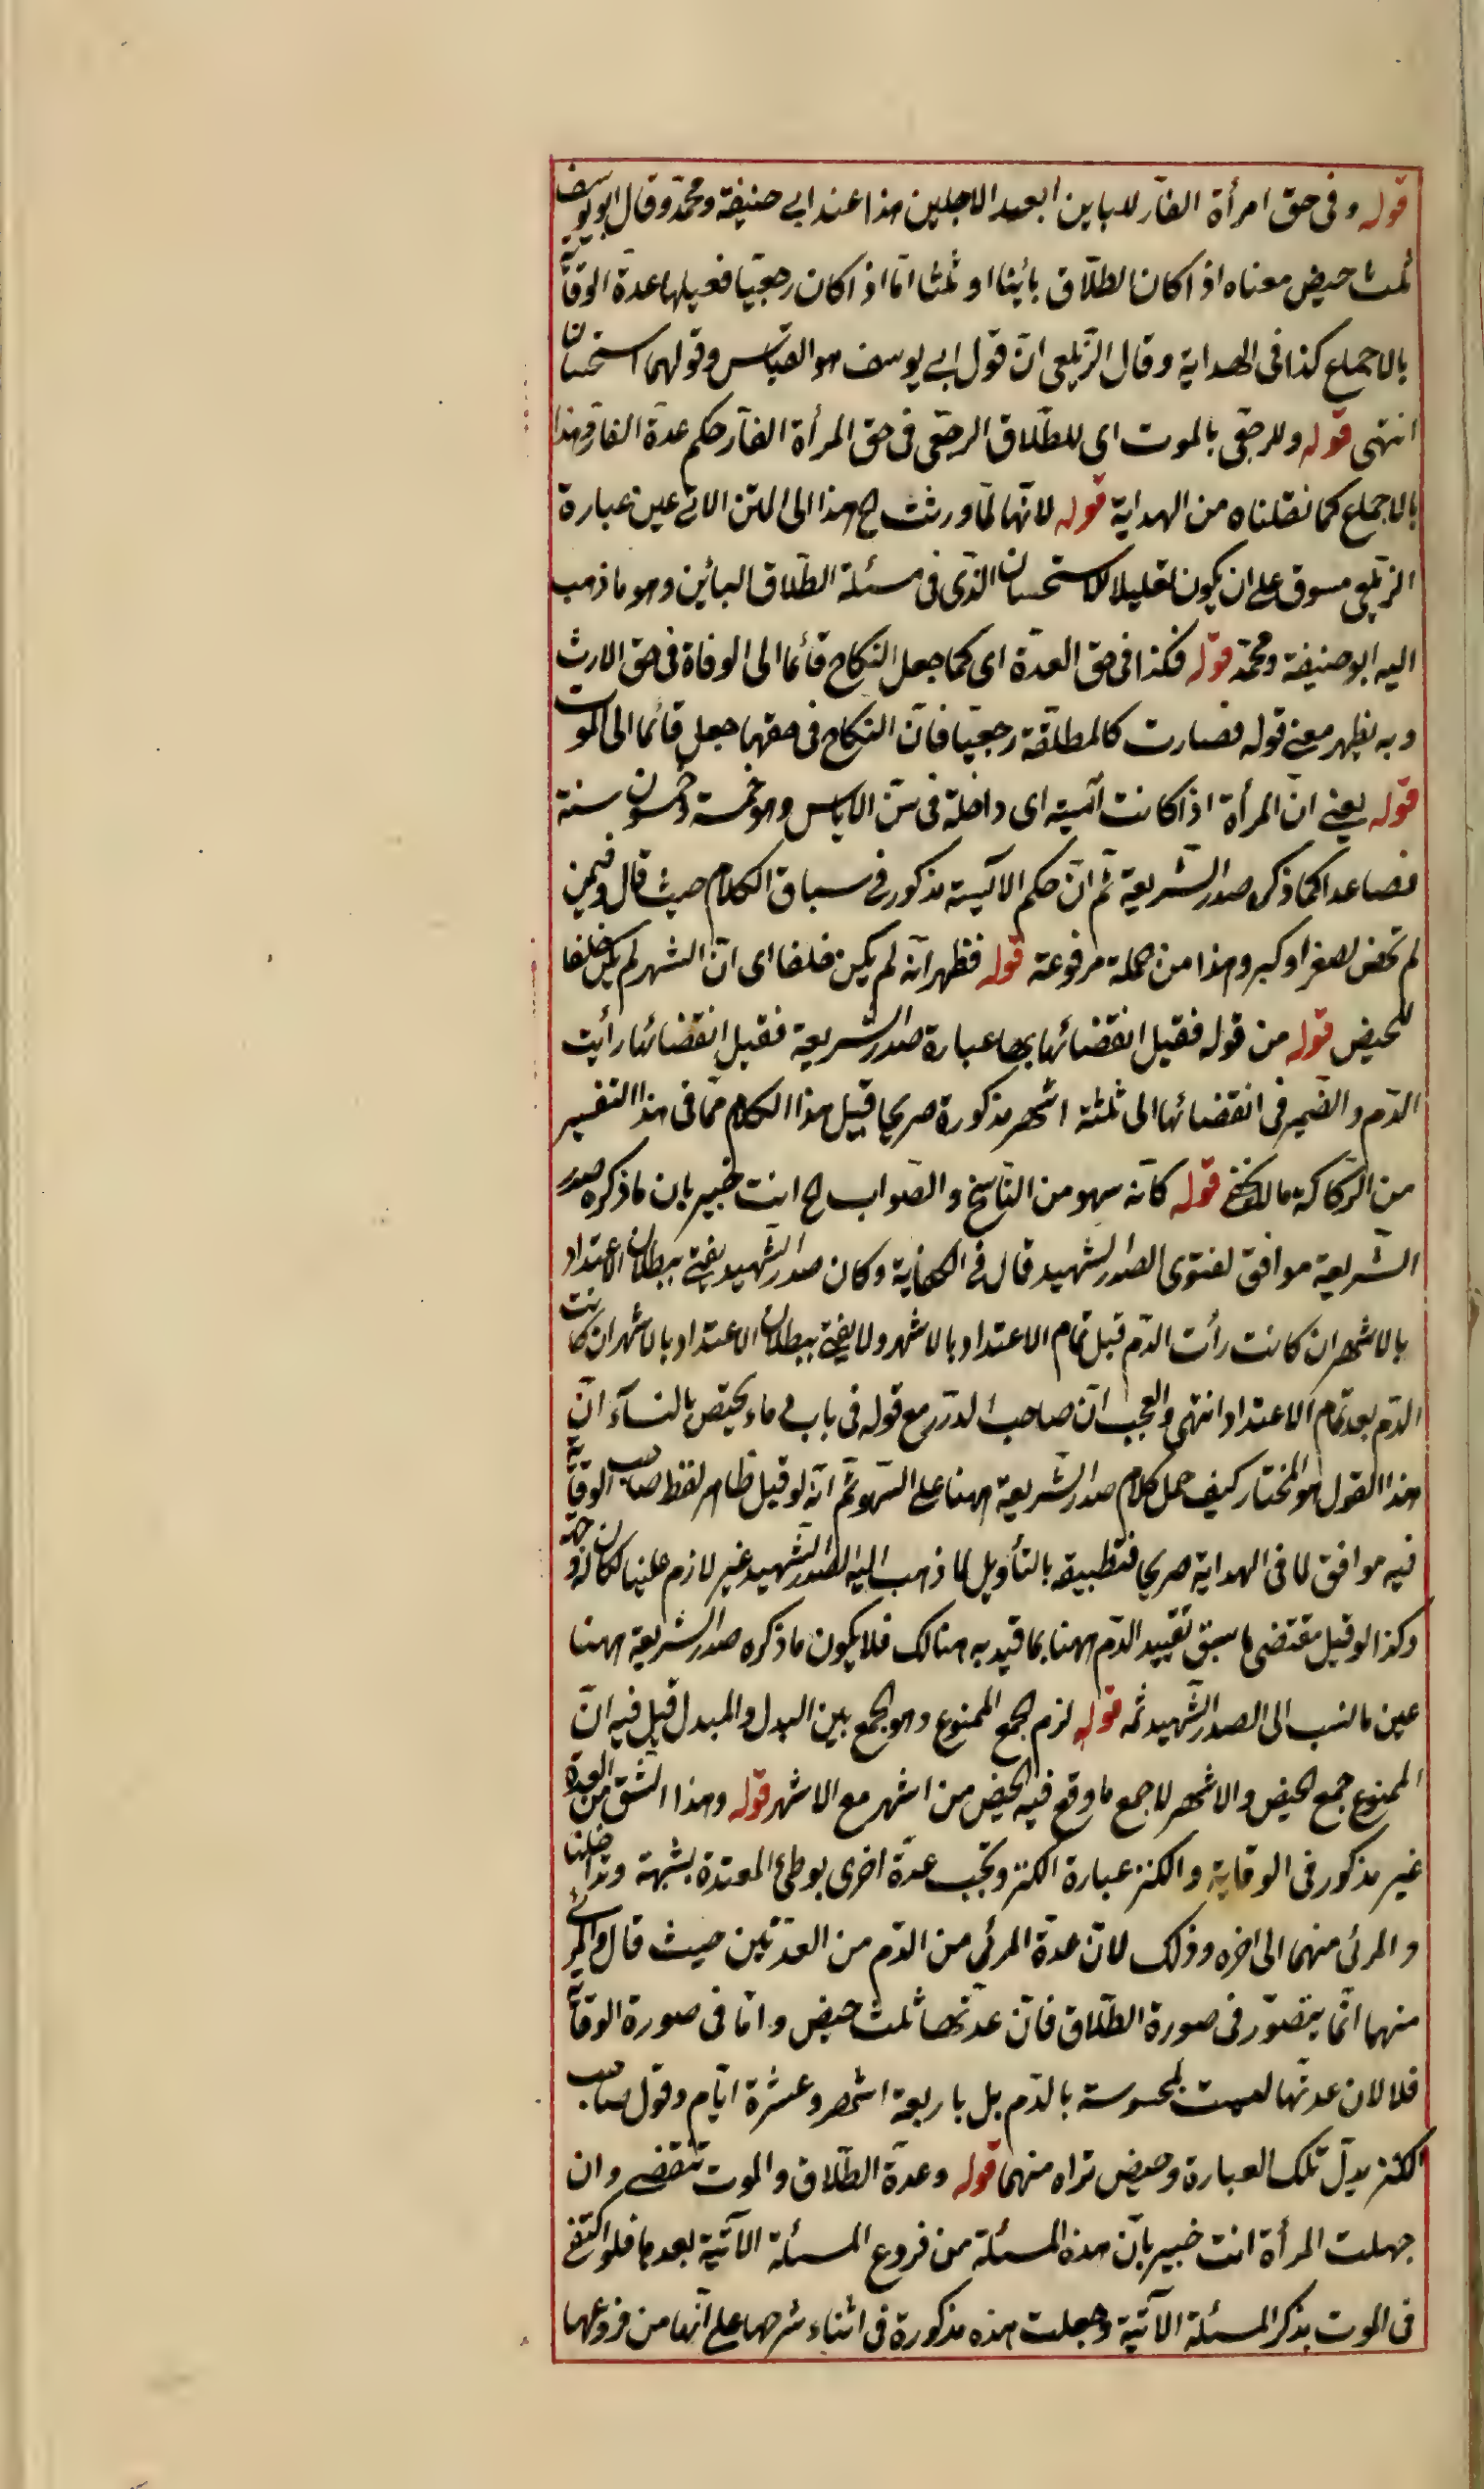 قوله وفى حق امرأة الفارّ للباين ابعد الاجلين هذا عند ابى حنيفة ومحمّد وقال ابو يوسف
ثلث حيض معناه اذا كان الطلاق بائينا او ثلثا امّا اذا كان رجعيّا فعيلها عدة الوفاة
بالاجماع كذا فى الهداية وقال الزيلعى انّ قول ابى يوسف هو القياس وقولهما استحسان
انتهى قوله وللرجعى بالموت اى للطّلاق الرجعى فى حق المرأة الفارّ حكم عدة الفارّ وهذا
بالاجماع كما نقلناه من الهداية قوله لانّها لمّا ورثت الخ هذا الى المتن الاتى عين عبارة
الزيلعى مسوق على ان يكون تعليلا للاستحسان الذى فى مسئلة الطلاق البائين وهو ما ذهب
اليه ابو حنيفة ومحمّد قوله فكذا فى حق العدّة اى كما جعل النكاح قائما الى الوفاة فى حق الارث
وبه يظهر معنى قوله فصارت كالمطلقة رجعيّا فانّ النكاح فى حقهها جعل قائما الى الموت
قوله يعنى انّ المرأة اذا كانت آئسة اى داخلة فى سنّ الاياس وهو خمسة وخمسون سنة
فصاعدا كما ذكره صدر الشّريعة ثم انّ حكم الآيسة مذكور فى سباق الكلام حيث قال وفيمن
لم تحض لصغر او كبر وهذا من جملة مرفوعة قوله فظهر انّه لم يكن خلفا اى انّ الشهر لم يكن خلفا
للحيض قوله من قوله فقبل انقضائها بها عبارة صدر الشريعة فقبل انقضائها رأيت
الدّم والضّمير فى انقضائها الى ثلثة اشهر مذكورة صريحا قبيل هذا الكلام فما فى هذا التفسير
من الرّكاكة ما لا يخفى قوله كانّه سهو من النّاسخ والصّواب الخ انت خبير بان ما ذكره صدر
الشّريعة موافق لفتوى الصدر الشهيد قال فى الكفاية وكان صدر الشّهيد يفتى ببطلان الاعتداد
بالاشهر ان كانت رأت الدّم قبل تمام الاعتداد بالاشهر ولا يفتى ببطلان الاعتداد بالاشهر ان كانت
الدّم بعد تمام الاعتداد انتهى والعجب انّ صاحب الدّرر مع قوله فى باب ما يختصّ بالنسآء انّ
هذا القول هو المختار كيف حمل كلام صدر الشّريعة ههنا على السّهو ثم انّه لو قيل ظاهر لفظ صاحب الوقاية
فيه موافق لما فى الهداية صريحا فتطبيقه بالتأويل لما ذهب اليه الصدر الشّهيد غير لازم علينا لكان له وجه
وكذا لو قيل مقتضى ما سبق تقييد الدّم ههنا بما قيّد به هنالك فلا يكون ما ذكره صدر الشريعة ههنا
عين ما نسب الى الصدر الشّهيد ثمه قوله لزم الجمع الممنوع وهو الجمع بين البدل والمبدل قيل فيه انّ
الممنوع جمع الحيض والاشهر لا جمع ما وقع فيه الحيض من اشهر مع الاشهر قوله وهذا الشّق من العدة
غير مذكور فى الوقاية والكنز عبارة الكنز وتجب عدّة اخرى بوطئ المعتدة بشبهة وتداخلتا
والمرئى منهما الى اخره وذلك لانّ عدّة المرئى من الدّم من العدّتين حيث قال والمرئى
منهما انّما يتصوّر فى صورة الطّلاق فانّ عدّتها ثلث حيض وامّا فى صورة الوفاة
فلا لان عدتها ليست بمحسوسة بالدّم بل باربعة اشهر وعشرة ايّام وقول صاحب
الكنز بدل تلك العبارة وحيض تراه منهما قوله وعدّة الطّلاق والموت تنقضى وان
جهلت المرأة انت خبير بانّ هذه المسئلة من فروع المسئلة الآتية بعدها فلو اكتفى
فى الموت بذكر المسئلة الآتية وجعلت هذه مذكورة فى اثناء شرحها على انّها من فروعها